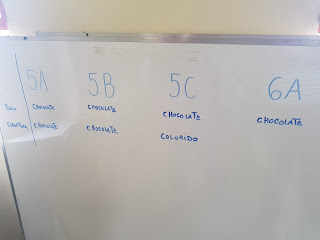 5A 5B 5C 6A
BOLO CHOCOLATE CHOCOLATE CHOCOLATE CHOCOLATE
COBERTURA CHOCOLATE CHOCOLATE COLORIDO